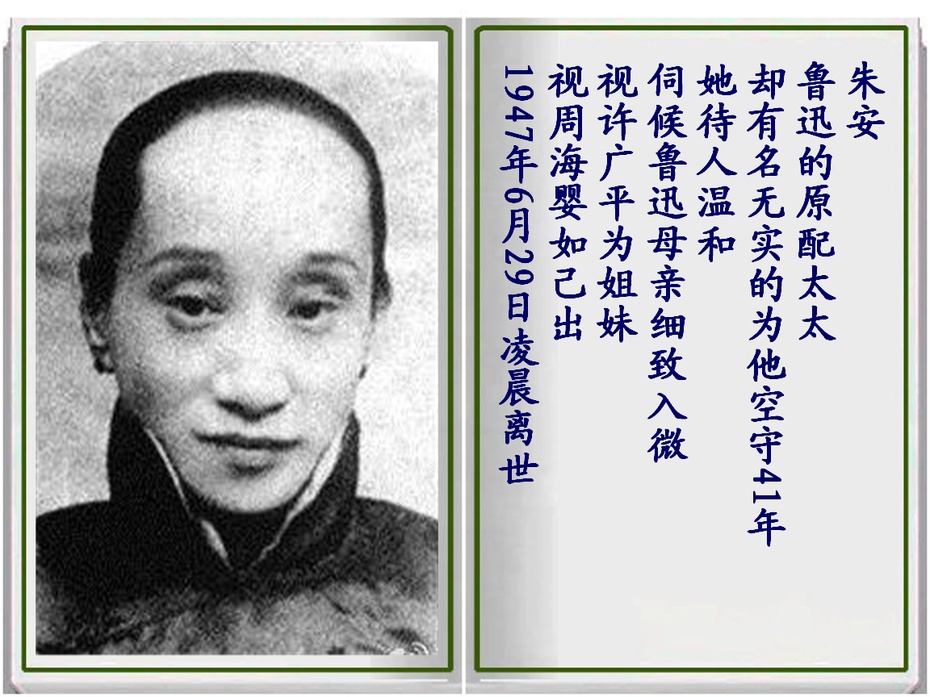 朱安
鲁迅的原配太太
却有名无实的为他空守41年
她待人温和
伺候鲁迅母亲细致入微
视许广平为姐妹
视周海婴如己出
1947年6月29日凌晨离世